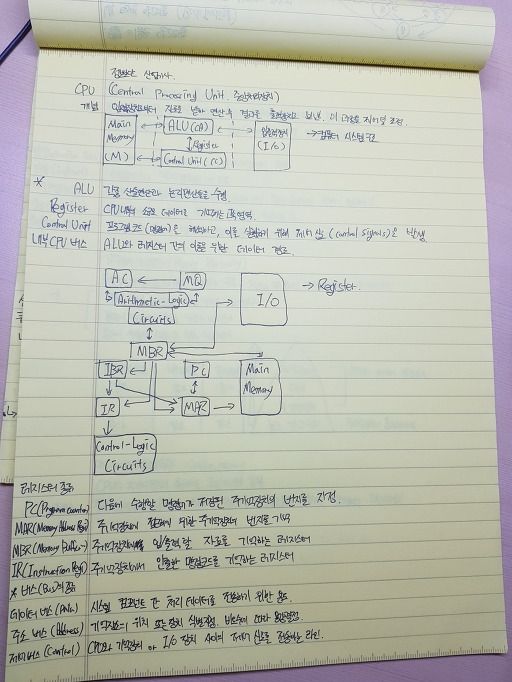 정보처리 산업기사.
CPU (Central Processing Unit, 중앙처리장치)
개념 입력장치로부터 자료를 받아 연산 후 결과를 출력장치로 보냄. 이 과정을 제어 및 조정.
Main Memory (M)
ALU (CA)
Register
Control Unit (CC)
입출력장치 (I/O)
→ 컴퓨터 시스템 구조
* ALU 각종 산술연산과 논리연산을 수행.
Register CPU 내부의 소량 데이터를 기억하는
Control Unit 프로그램 코드(명령어)를 해석하고, 이를 실행하기 위해 제어 신호 (control signals)을 발생.
내부 CPU 버스 ALU와 레지스터 간의 이동을 위한 데이터 경로.
AC
MQ
Arithmetic-Logic
Circuits
I/O
→ Register.
MBR
IBR
PC
Main
Memory
IR
MAR
Control-Logic
Circuits
레지스터 종류
PC(Program counter) 다음에 수행할 명령어가 저장된 주기억장치의 번지를 지정.
MAR(Memory Address Regi) 주기억장치에 접근하기 위한 주기억장치의 번지를 기억
MBR(Memory Buffer~) 주기억장치에 입/출력할 자료를 기억하는 레지스터
IR(Instruction Regi) 주기억장치에서 인출한 명령코드를 기억하는 레지스터
* 버스(Bus)의 종류
데이터 버스(Data) 시스템 컴포넌트 간 처리 데이터를 전송하기 위한 용도
주소 버스(Address) 기억장소의 위치 또는 장치 식별 지정.
제어버스(Control) CPU와 기억장치 or I/O 장치 사이의 제어 신호를 전송하는 라인.